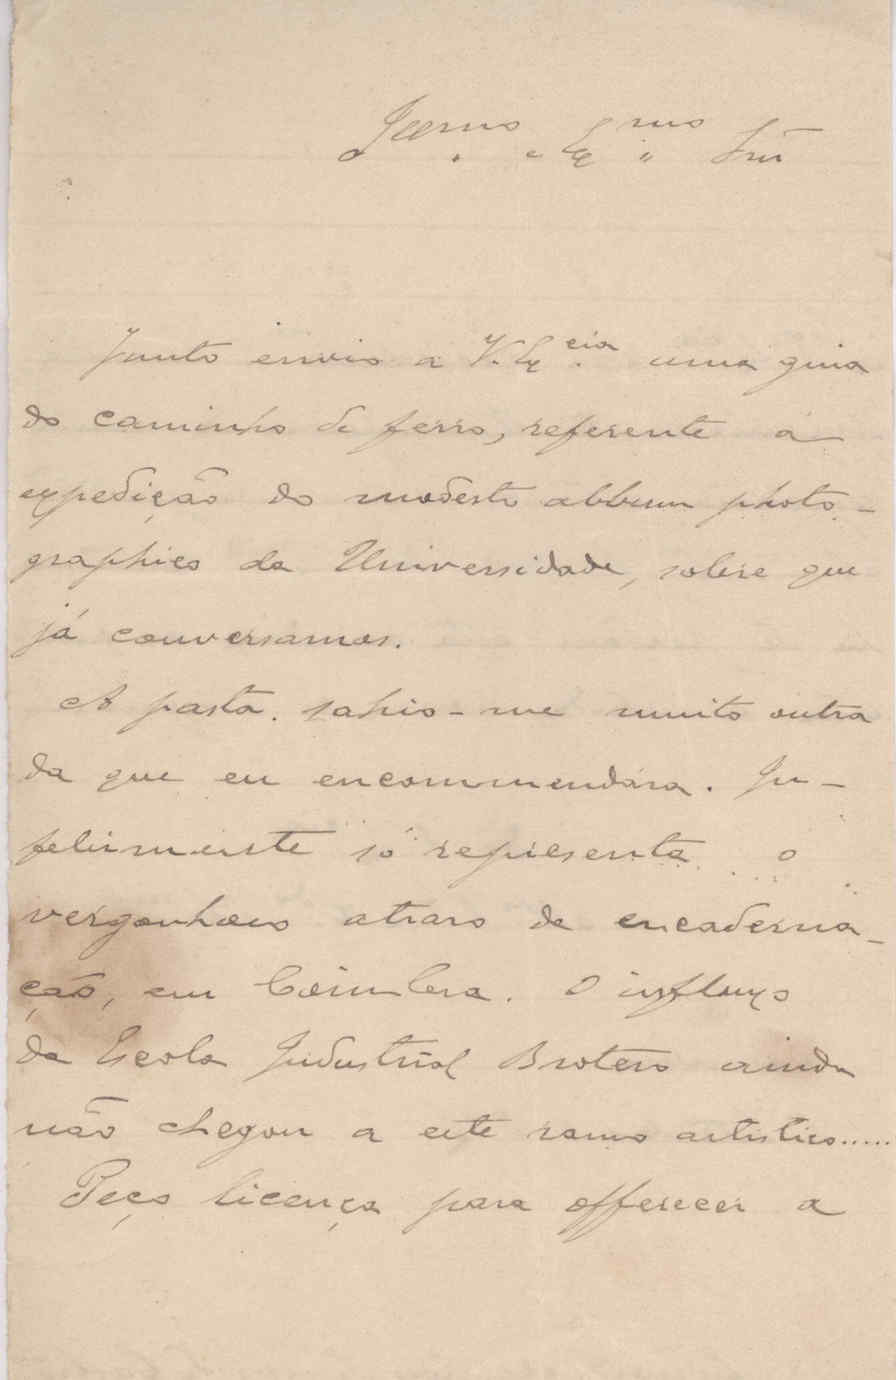 Illmo e Exmo Snr
Junto envio a V. Excia uma guia
do caminho de ferro, referente á
expedição do modesto album photo-
graphico da Universidade, sobre que
já conversamos.
A pasta sahio-me muito outra
da que eu encommendára. In-
felizmente só representa o
vergonhoso atrazo de encaderna-
ção, em Coimbra. O influxo
da Escola Industrial Brotero ainda
não chegou a este ramo artistico.....
Peço licença para offerecer a